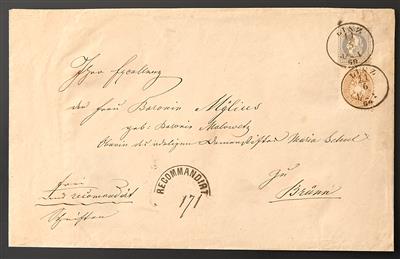 LINZ
68
LINZ
Ihro Excellenz
der Frau Baronin Mylius
geb: Baronin Malowetz
Oberin des adeligen Damenstiftes Maria Schul
zu
Brünn
frei
und recomandirt
Schriften
RECOMMANDIRT
171